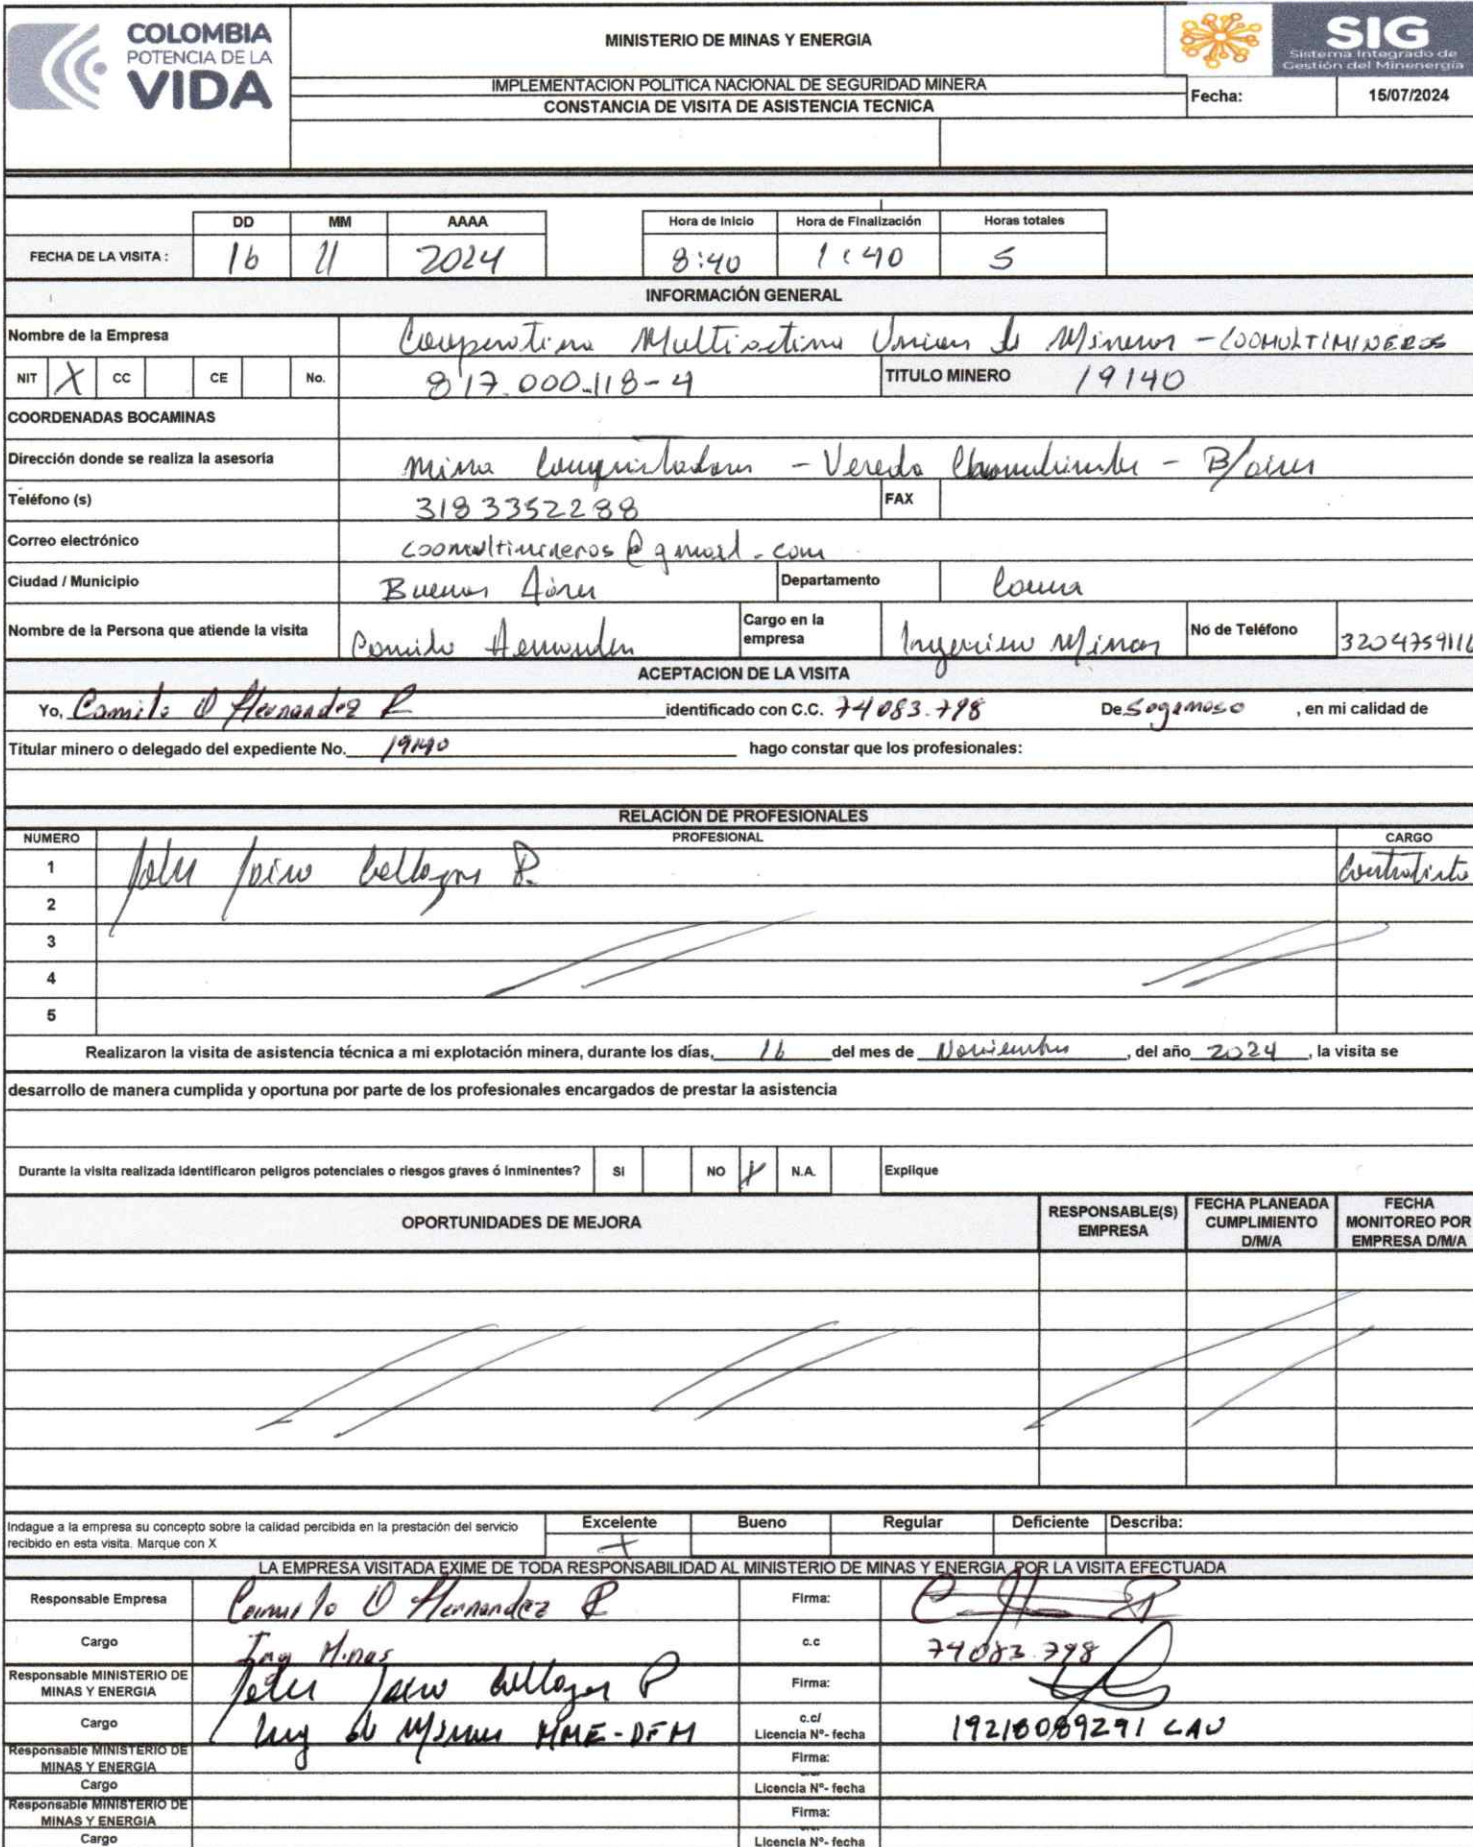 COLOMBIA
POTENCIA DE LA
VIDA
MINISTERIO DE MINAS Y ENERGIA
SIG
Sistema Integrado de
Gestión del Minenergía
IMPLEMENTACION POLITICA NACIONAL DE SEGURIDAD MINERA
CONSTANCIA DE VISITA DE ASISTENCIA TECNICA
Fecha: 15/07/2024
DD MM AAAA Hora de Inicio Hora de Finalización Horas totales
FECHA DE LA VISITA : 16 11 2024 8:40 1:40 5
INFORMACIÓN GENERAL
Nombre de la Empresa Cooperativa Multiactiva Union de Mineros - COOMULTIMINEROS
NIT X CC CE No. 817.000.118-4 TITULO MINERO 19140
COORDENADAS BOCAMINAS
Dirección donde se realiza la asesoría Mina - Vereda - B/aires
Teléfono (s) 3183352288 FAX
Correo electrónico coomultimineros@gmail.com
Ciudad / Municipio Buenos Aires Departamento Cauca
Nombre de la Persona que atiende la visita Camilo Hernandez Cargo en la empresa Ingeniero Minas No de Teléfono 3204759116
ACEPTACION DE LA VISITA
Yo, Camilo O Hernandez R identificado con C.C. 74083.798 De Sogamoso , en mi calidad de
Titular minero o delegado del expediente No. 19140 hago constar que los profesionales:
RELACIÓN DE PROFESIONALES
NUMERO PROFESIONAL CARGO
1 Jairo Contratista
2
3
4
5
Realizaron la visita de asistencia técnica a mi explotación minera, durante los días, 16 del mes de Noviembre , del año 2024 , la visita se
desarrollo de manera cumplida y oportuna por parte de los profesionales encargados de prestar la asistencia
Durante la visita realizada identificaron peligros potenciales o riesgos graves ó inminentes? SI NO X N.A. Explique
OPORTUNIDADES DE MEJORA RESPONSABLE(S) EMPRESA FECHA PLANEADA CUMPLIMIENTO D/M/A FECHA MONITOREO POR EMPRESA D/M/A
Indague a la empresa su concepto sobre la calidad percibida en la prestación del servicio
recibido en esta visita. Marque con X
Excelente Bueno Regular Deficiente Describa:
X
LA EMPRESA VISITADA EXIME DE TODA RESPONSABILIDAD AL MINISTERIO DE MINAS Y ENERGIA POR LA VISITA EFECTUADA
Responsable Empresa Camilo O Hernandez R Firma:
Cargo Ing Minas c.c 74083.798
Responsable MINISTERIO DE MINAS Y ENERGIA Jairo Firma:
Cargo Ing de Minas MME-DFM c.c/ Licencia Nº- fecha 19218089291 CAU
Responsable MINISTERIO DE MINAS Y ENERGIA Firma:
Cargo Licencia Nº- fecha
Responsable MINISTERIO DE MINAS Y ENERGIA Firma:
Cargo Licencia Nº- fecha